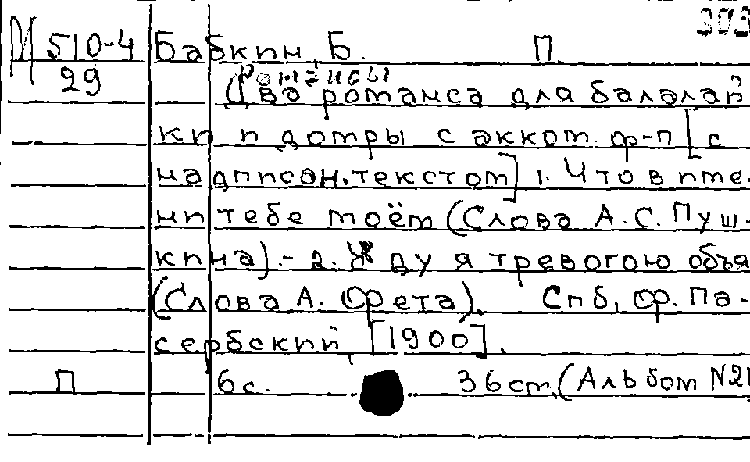 303
М 510-4 Бабкин, Б. П.
29 Романсы
(Два романса для балалай
ки и домры с аккомп. ф-п [с
надписан. текстом] 1. Что в име-
ни тебе моём (Слова А.С. Пуш-
кина).- 2. Жду я тревогою объя
(Слова А. Фета). Спб, ф. Па-
сербский, [1900].
П 6 с. 36 cm. (Альбом №21